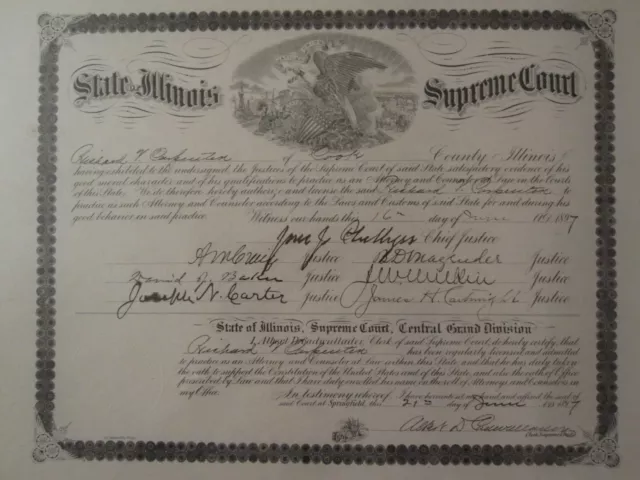 State of Illinois Supreme Court
Richard V. Carpenter of Cook County Illinois
having exhibited to the undersigned, the Justices of the Supreme Court of said State, satisfactory evidence of his
good moral character, and of his qualifications to practice as an Attorney and Counselor at Law in the Courts
of this State. We do therefore, hereby authorize and license the said Richard V. Carpenter to
practice as such Attorney and Counselor according to the Laws and Customs of said State for and during his
good behavior in said practice. Witness our hands this 16th day of June 1897
Chief Justice
Justice Justice
David J. Baker Justice Justice
Joseph N. Carter Justice James H. Cartwright Justice
State of Illinois, Supreme Court, Central Grand Division
Clerk of said Supreme Court, do hereby certify, that
Richard V. Carpenter has been regularly licensed and admitted
to practice as an Attorney and Counselor at Law within this State and that he has duly taken
the oath to support the Constitution of the United States and of this State, and also the oath of Office
prescribed by Law and that I have duly enrolled his name on the roll of Attorneys and Counselors in
my Office. In testimony whereof, I have hereunto set my hand and affixed the seal of
said Court at Springfield, this
21st day of June 1897